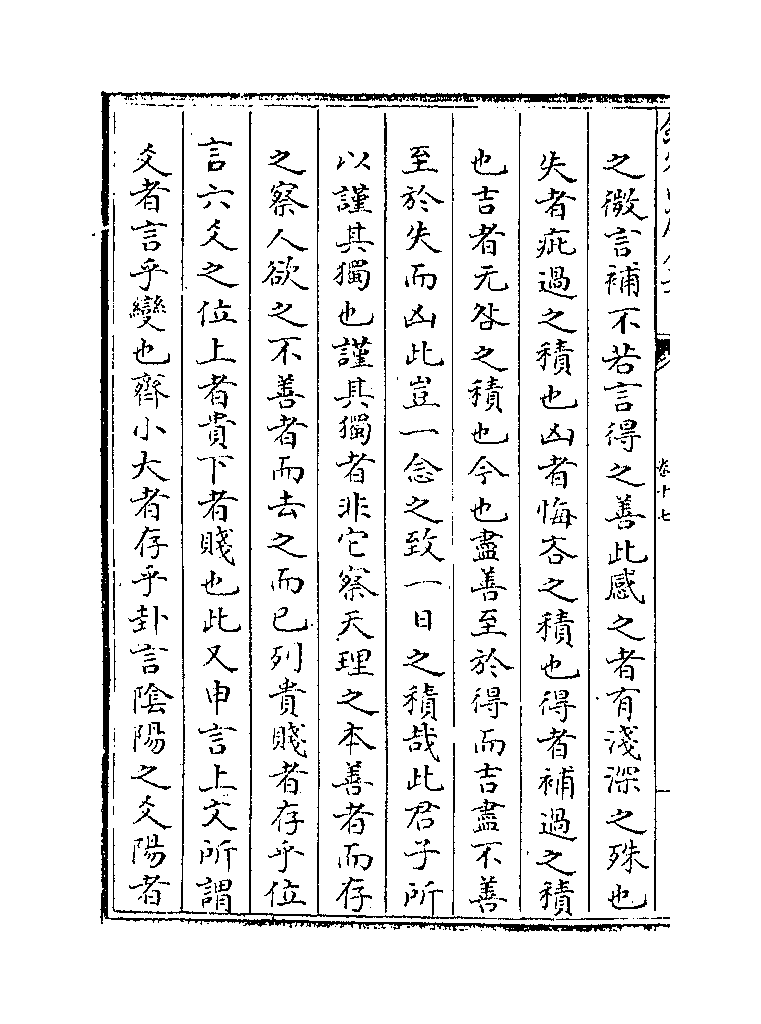 之微言補不若言得之善此感之者有淺深之殊也
失者疵過之積也凶者悔吝之積也得者補過之積
也吉者无咎之積也今也盡善至於得而吉盡不善
至於失而凶此豈一念之致一日之積哉此君子所
以謹其獨也謹其獨者非它察天理之本善者而存
之察人欲之不善者而去之而已列貴賤者存乎位
言六爻之位上者貴下者賤也此又申言上文所謂
爻者言乎變也齊小大者存乎卦言陰陽之爻陽者
卷十七